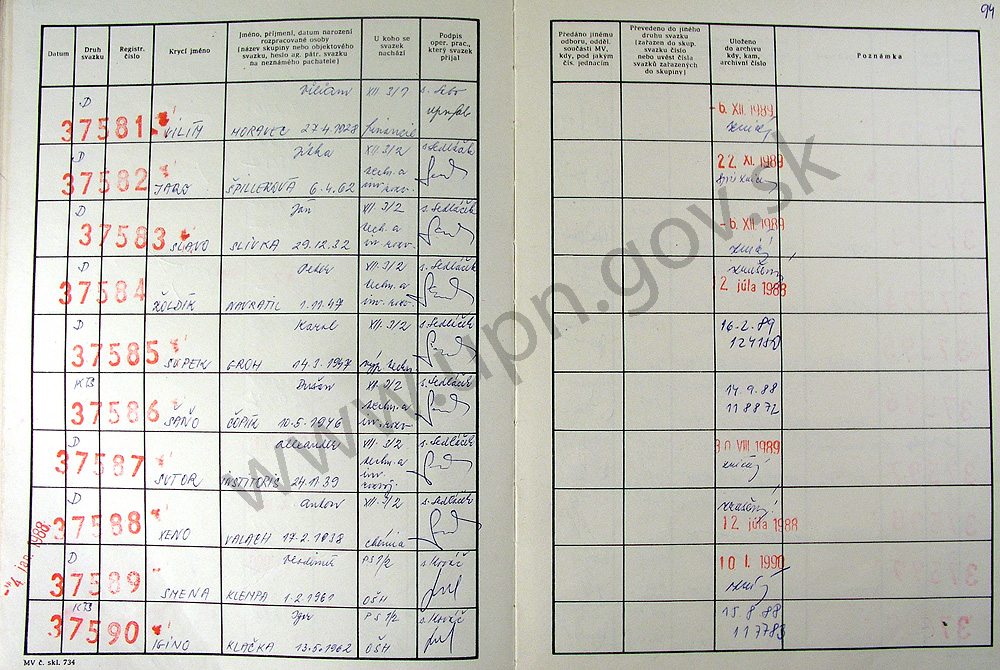 94
Datum
Druh svazku
Registr. číslo
Krycí jméno
Jméno, příjmení, datum narození
rozpracované osoby
(název skupiny nebo objektového
svazku, heslo ag. pátr. svazku
na neznámého pachatele)
U koho se
svazek
nachází
Podpis
oper. prac.,
který svazek
přijal
Předáno jinému
odboru, odděl.
součásti MV,
kdy, pod jakým
čís. jednacím
Převedeno do jiného
druhu svazku
(zařazen do skup.
svazku číslo
nebo uvést čísla
svazků zařazených
do skupiny)
Uloženo
do archivu
kdy, kam,
archivní číslo
Poznámka
D Viliam XII 3/1
37581 VILIM MORAVEC 27.4.1928 financie
-6. XII. 1989
D Jitka XII. 3/2 s. Sedláček
37582 JARO ŠPILLEROVÁ 6.4.62
22. XI. 1989
D Ján XII. 3/2 s. Sedláček
37583 SLAVO SLIVKA 29.12.32
-6. XII. 1989
D Peter XII. 3/2 s. Sedláček
37584 ŽOLDÍK NAVRATIL 1.11.47
zrušený
2 júla 1988
D Karol XII. 3/2 s. Sedláček
37585 GROH 14.3.1947
16.2.89
KTS Dušan XII. 3/2 s. Sedláček
37586 SAŇO ČOPÍK 10.5.1946
14.9.88
11887
D Alexander XII. 3/2 s. Sedláček
37587 SUTOR INSTITORIS 24.11.39
30 VIII. 1989
D Anton XII. 3/2 s. Sedláček
37588 XENO VALACH 17.2.1938 chémia
zrušený
12 júla 1988
-4. jan. 1988
D Vladimír PS 1/2 s. Kováč
37589 SMENA KLEMPA 1.2.1961 OŠH
10 I. 1990
KTS Igor PS 1/2 s. Kováč
37590 IGINO KLAČKA 13.5.1962 OŠH
15.8.88
117783
MV č. skl. 734
www.upn.gov.sk